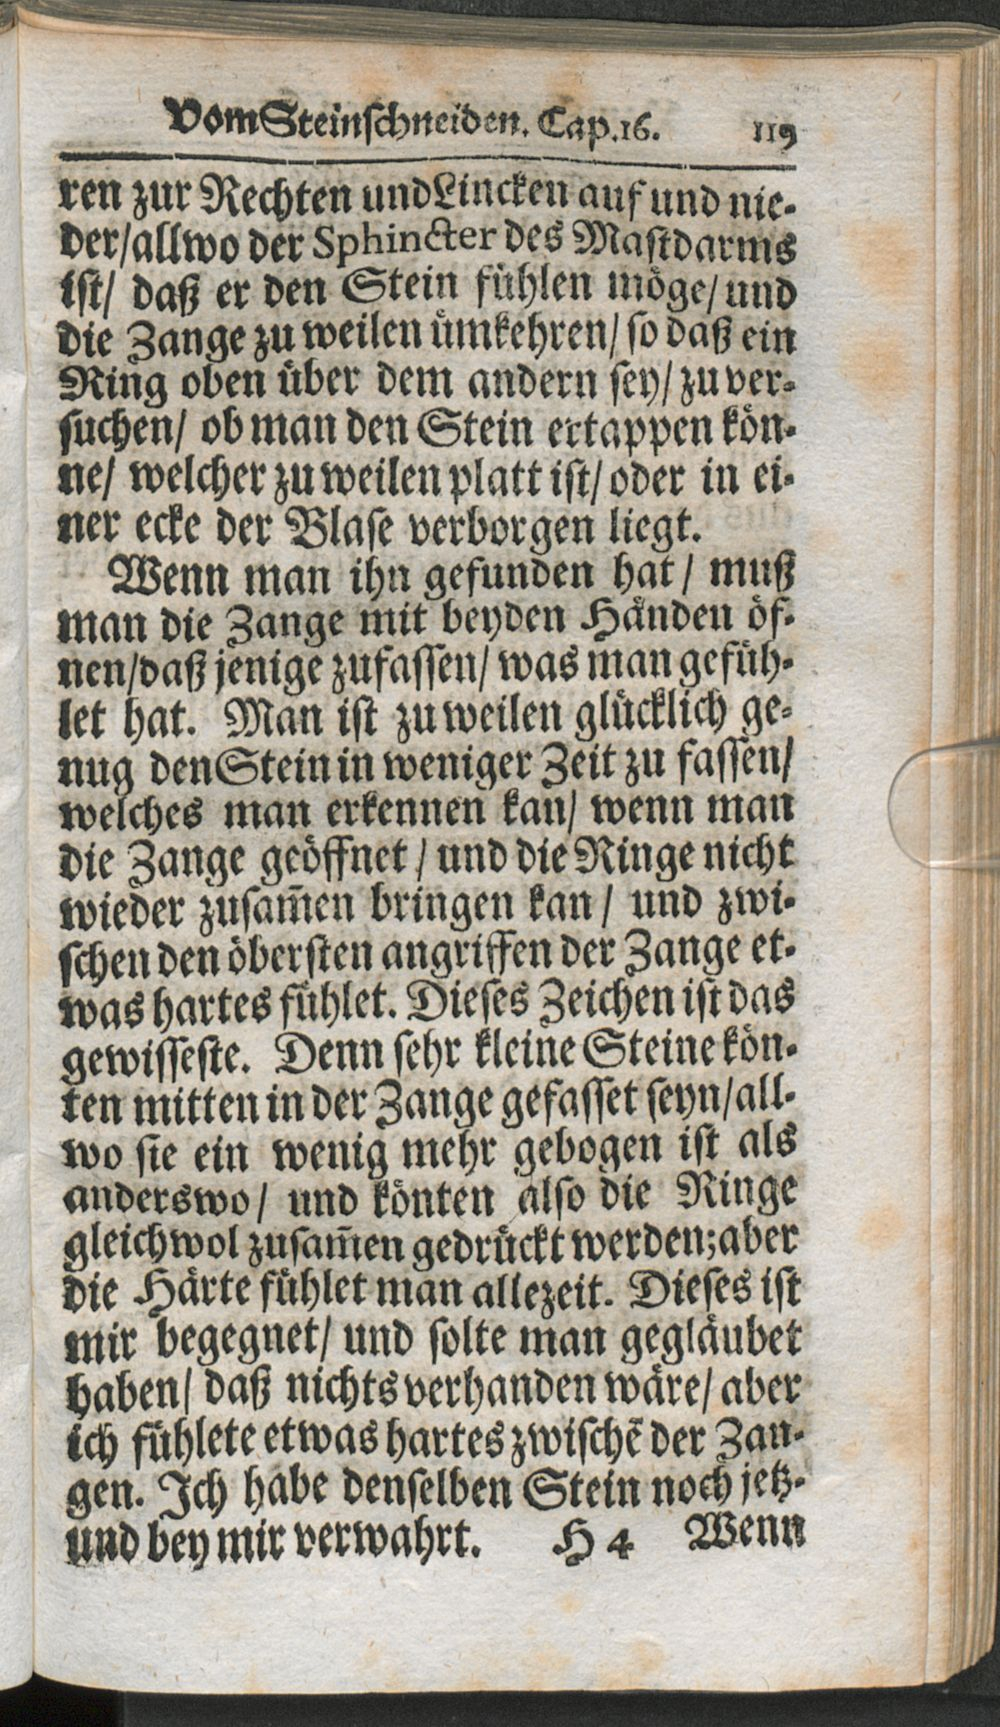 Vom Steinschneiden. Cap. 16. 119
ren zur Rechten und Lincken auf und nie-
der/ allwo der Sphincter des Mastdarms
ist/ daß er den Stein fühlen möge/ und
die Zange zu weilen ümkehren/ so daß ein
Ring oben über dem andern sey/ zu ver-
suchen/ ob man den Stein ertappen kön-
ne/ welcher zu weilen platt ist/ oder in ei-
ner ecke der Blase verborgen liegt.
Wenn man ihn gefunden hat/ muß
man die Zange mit beyden Händen öf-
nen/ daß jenige zufassen/ was man gefüh-
let hat. Man ist zu weilen glücklich ge-
nug den Stein in weniger Zeit zu fassen/
welches man erkennen kan/ wenn man
die Zange geöffnet/ und die Ringe nicht
wieder zusam̄en bringen kan/ und zwi-
schen den öbersten angriffen der Zange et-
was hartes fühlet. Dieses Zeichen ist das
gewisseste. Denn sehr kleine Steine kön-
ten mitten in der Zange gefasset seyn/ all-
wo sie ein wenig mehr gebogen ist als
anderswo/ und könten also die Ringe
gleichwol zusam̄en gedrückt werden; aber
die Härte fühlet man allezeit. Dieses ist
mir begegnet/ und solte man gegläubet
haben/ daß nichts verhanden wäre/ aber
ich fühlete etwas hartes zwischē der Zan-
gen. Ich habe denselben Stein noch jetz-
und bey mir verwahrt. H 4 Wenn